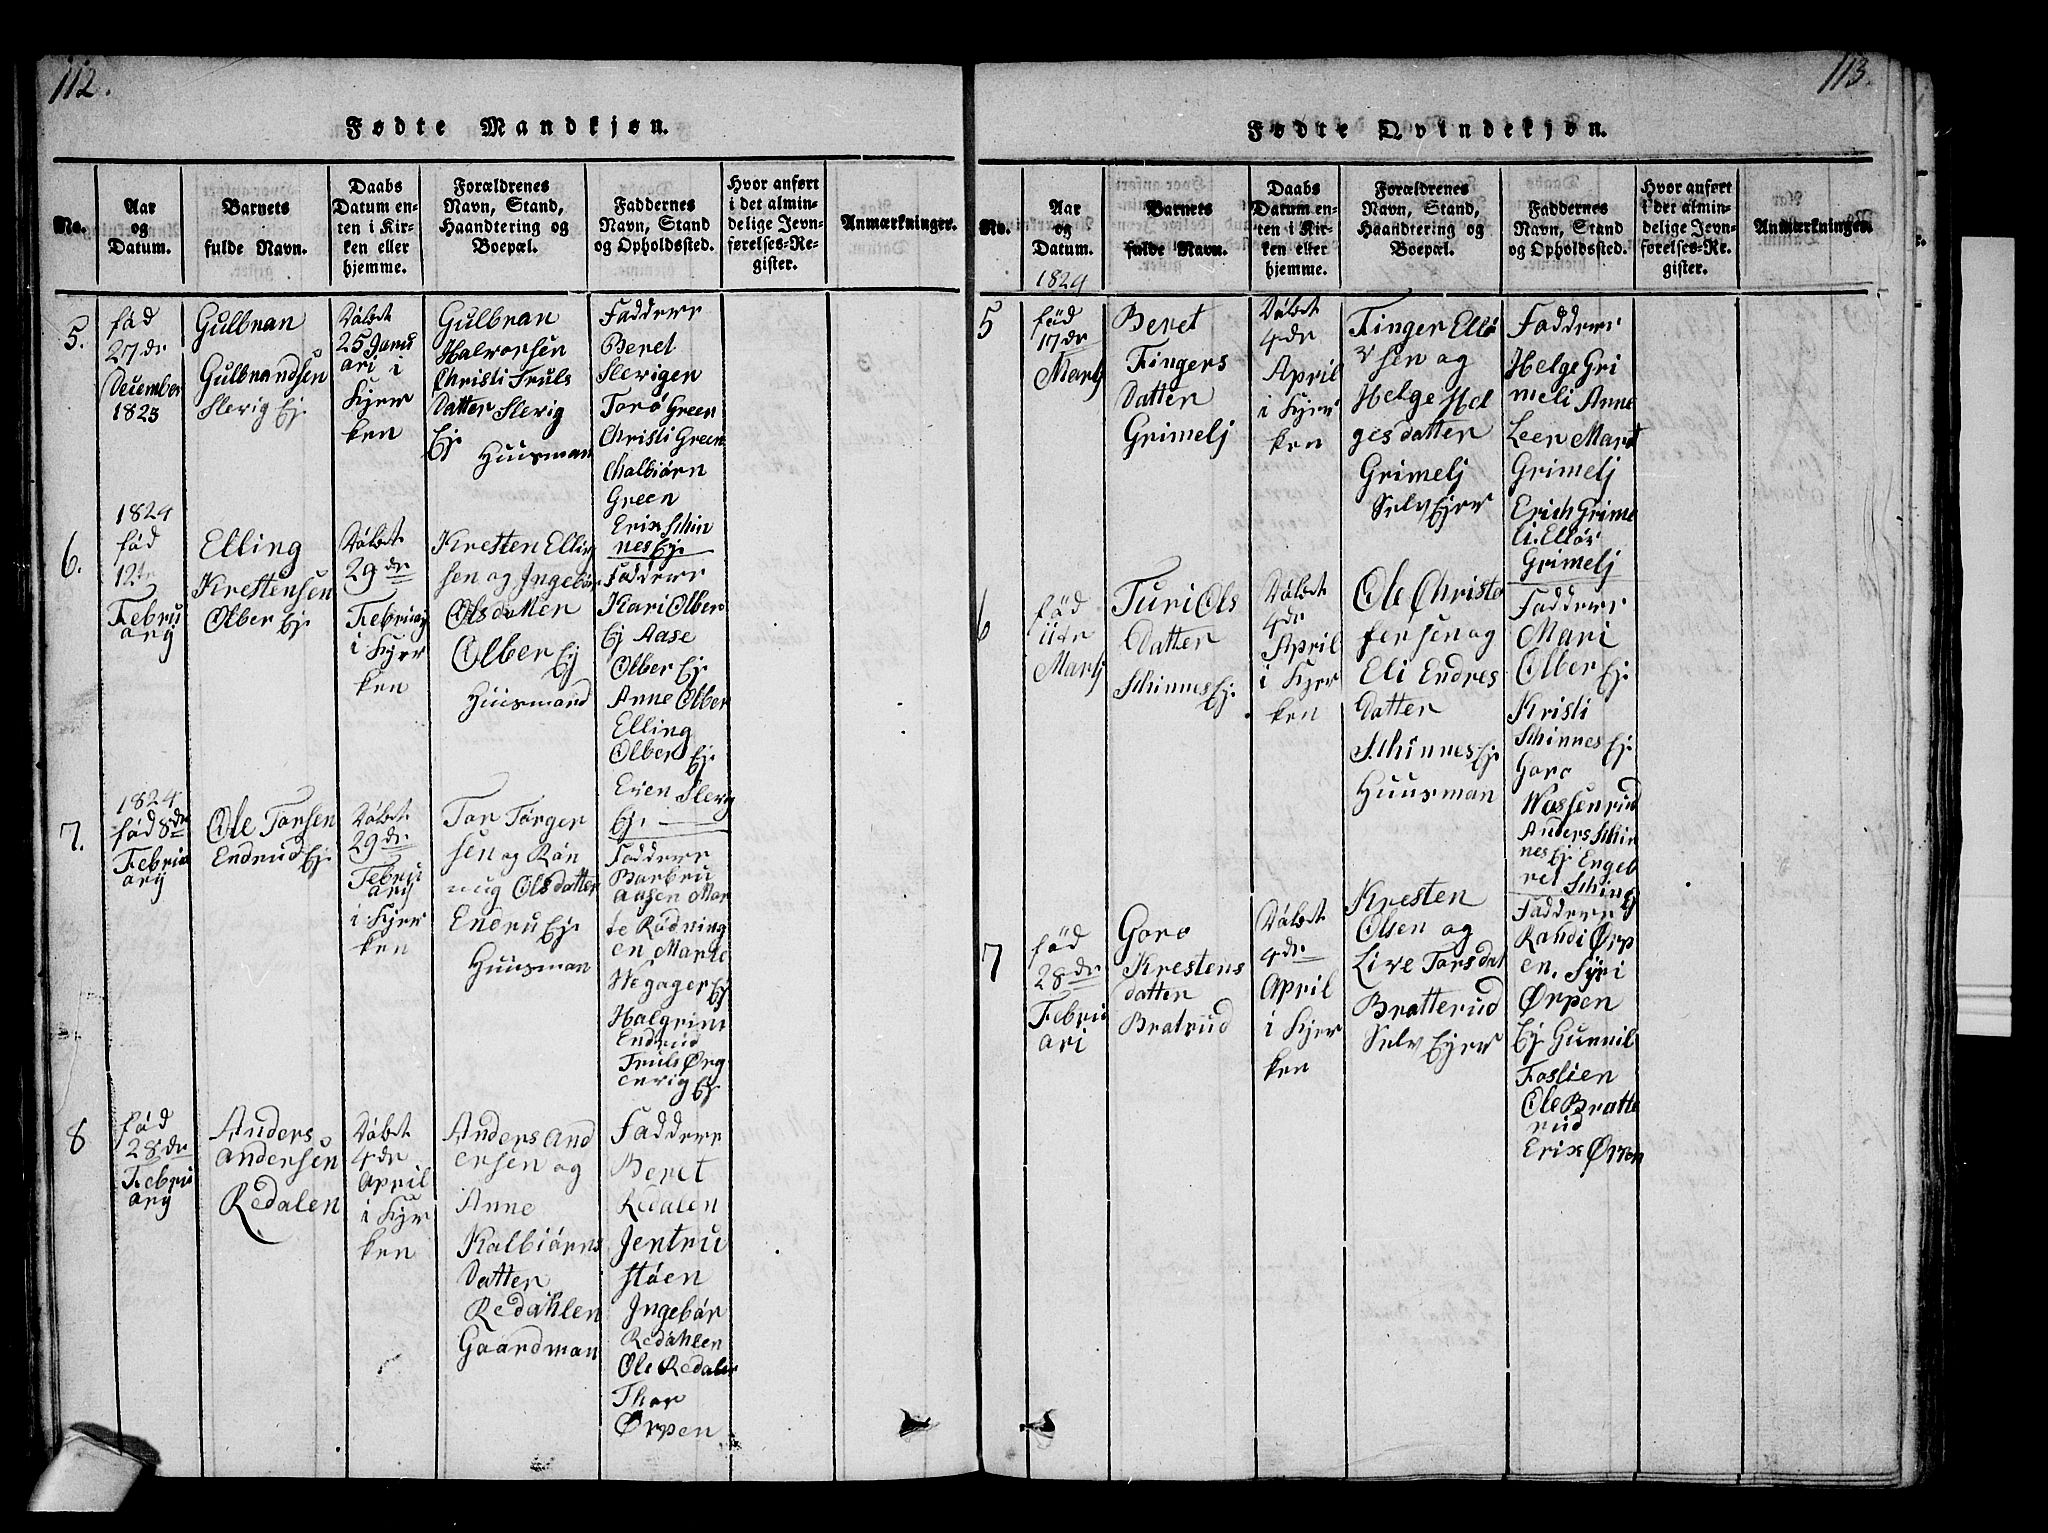 112.
Fødte Mandkjøn.
No.
Aar
og
Datum.
Barnets
fulde Navn.
Daabs
Datum en-
ten i Kir-
ken eller
hjemme.
Forældrenes
Navn, Stand,
Haandtering og
Boepæl.
Faddernes
Navn, Stand
og Opholdssted.
Hvor anført
i det almin-
delige Jevn-
førelses-Re-
gister.
Anmærkninger.
5.
fød
27de
December
1823
Gulbran
Gulbrandsen
Slevig Ej.
Døbt
25 Janu
ari i
Kyer
ken
Gulbran
Halvorsen
Christi Truls
Datter Slevig
Ej.
Huusman
Faddere
Beret
Slevigen
Torø Green
Christi Green
Calbiørn
Green
Erik Schin
nes Ej.
6.
1824
fød
12te
Febru
ary
Elling
Krestensen
Olber Ej.
Døbt
29 de
Februay
i Kyer
ken
Kresten Elling
sen og Ingebør
Olsdatter
Olber Ej
Huusmand
Faddere
Kari Olber
Ej Aase
Olber Ej.
Anne Olber
Elling
Olber Ej.
Even Slevig
Ej.
7.
1824
fød 8de
Febru
ary
Ole Torsen
Endrud Ej.
Døbt
29de
Febru
ary
i Kyer
ken
Tor Torger
sen og Røn
nug Olsdatter
Endru Ej.
Huusman
Faddere
Barbru
Aasen Mar
te Rødning
en Marte
Wegager Ej
Halgrim
Endrud
Truls Ørg
enrig Ej.
8
fød
28de
Febru
ary
Anders
Andersen
Redalen
Døbt
4de
April
i Kyr
ken
Anders And
ersen og
Anne
Kalbiørns
Datter
Redahlen
Gaardman
Faddere
Beret
Redalen
Jentru
støen
Ingebør
Redahlen
Ole Redalen
Thor
Ørpen
113.
Fødte Qvindekjøn.
No.
Aar
og
Datum.
1824
Barnets
fulde Navn.
Daabs
Datum en-
ten i Kir-
ken eller
hjemme.
Forældrenes
Navn, Stand,
Haandtering og
Boepæl.
Faddernes
Navn, Stand
og Opholdssted.
Hvor anført
i det almin-
delige Jevn-
førelses-Re-
gister.
Anmærkninger.
5
fød
17de
Martj
Beret
Fingers
Datter
Grimelj
Døbt
4de
April
i Kyer
ken
Finger Ellø
vsen og
Helge Hel
gesdatter
Grimelj
Selv Ejer
Faddere
Helge Gri
meli Anne
Leer Marit
Grimelj
Erich Grime
li. Elløv
Grimelj
6
fød
11te
Martj
Turi Ols
Datter
Schinnes Ej.
Døbt
4de
April
i Kyer
ken
Ole Christo
fersen og
Eli Endres
Datter
Schinnes Ej.
Huusman
Faddere
Mari
Olber Ej.
Kristi
Schinnes Ej.
Goro
Wassenrud
Anders Schin
nes Ej Engeb
ret Schin Ej
7
fød
28de
Febru
ari
Goro
Krestens
datter
Bratrud
Døbt
4de
April
i Kyer
ken
Kresten
Olsen og
Live Torsdat
Bratterud
Selv Ejer
Faddere
Randi Ørp
en, Syri
Ørpen
Ej Gunnil
Foslien
Ole Bratte
rud
Erik Ørpen